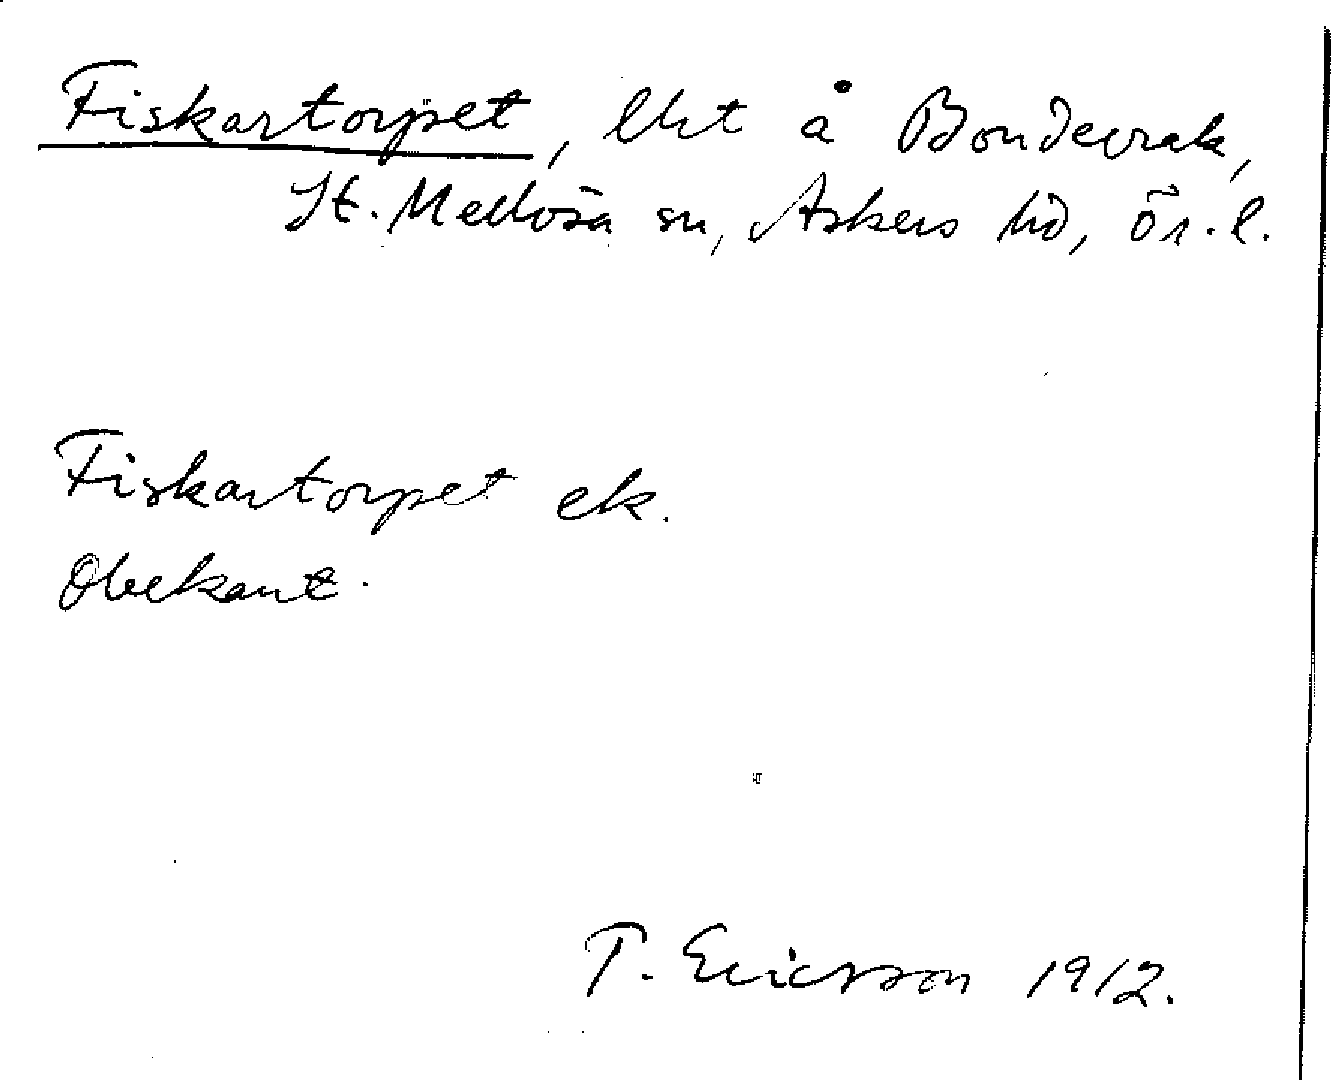 Fiskartorpet, lht å Bondevrak,
St. Mellösa sn, Askers hd, Ör. l.
Fiskartorpet ek.
Obekant.
T. Ericsson 1912.